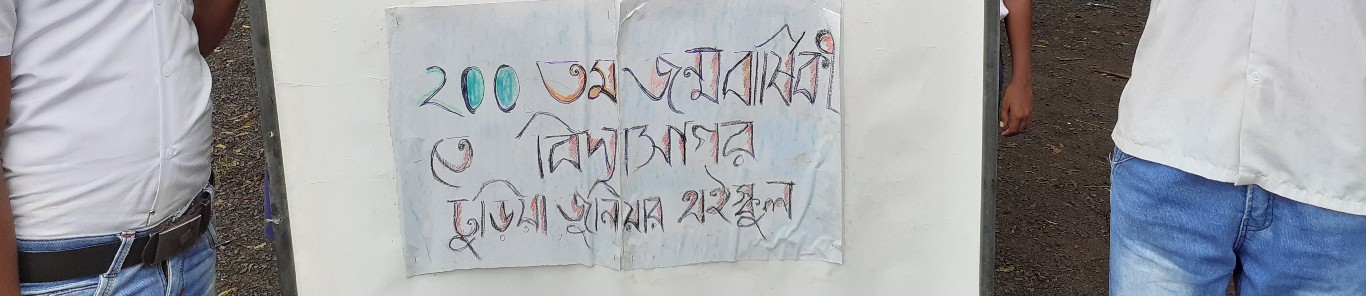 ২০০ তম জন্মবার্ষিকী
তে বিদ্যাসাগর
ভুড়িয়া জুনিয়র হাইস্কুল